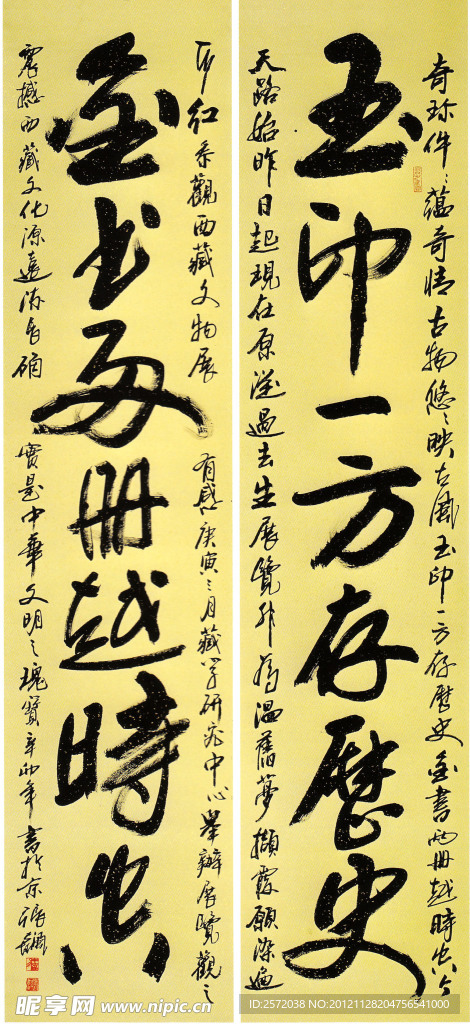 奇珍件〻蕴奇情古物悠〻映古風玉印一方存歷史金書两冊越時空今
玉印一方存歷史
天路始昨日起現在原從過去生展覽非為溫舊夢擷霞願深遠
所紅系觀西藏文物展
有感庚寅三月藏學研究中心舉辦展覽觀之
金书两册越時空
震撼西藏文化源遠流長確
實是中華文明之瑰寶辛卯年書於京
昵享网 www.nipic.cn
ID:2572038 NO:20121128204756541000